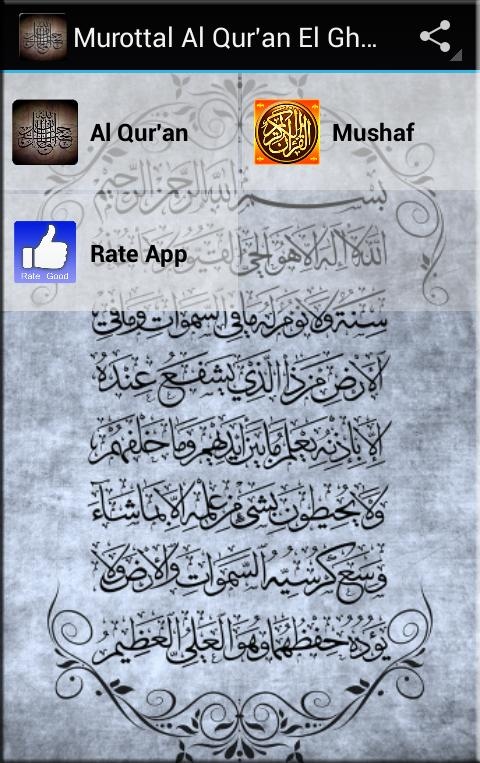 Murottal Al Qur'an El Gh...
Al Qur'an
Mushaf
Rate App
Rate Good
بسم الله الرحمن الرحيم
الله لا إله إلا هو الحي القيوم
سنة ولا نوم له ما في السموات وما في
الأرض من ذا الذي يشفع عنده
إلا بإذنه يعلم ما بين أيديهم وما خلفهم
ولا يحيطون بشيء من علمه إلا بما شاء
وسع كرسيه السموات والأرض ولا
يؤده حفظهما وهو العلي العظيم